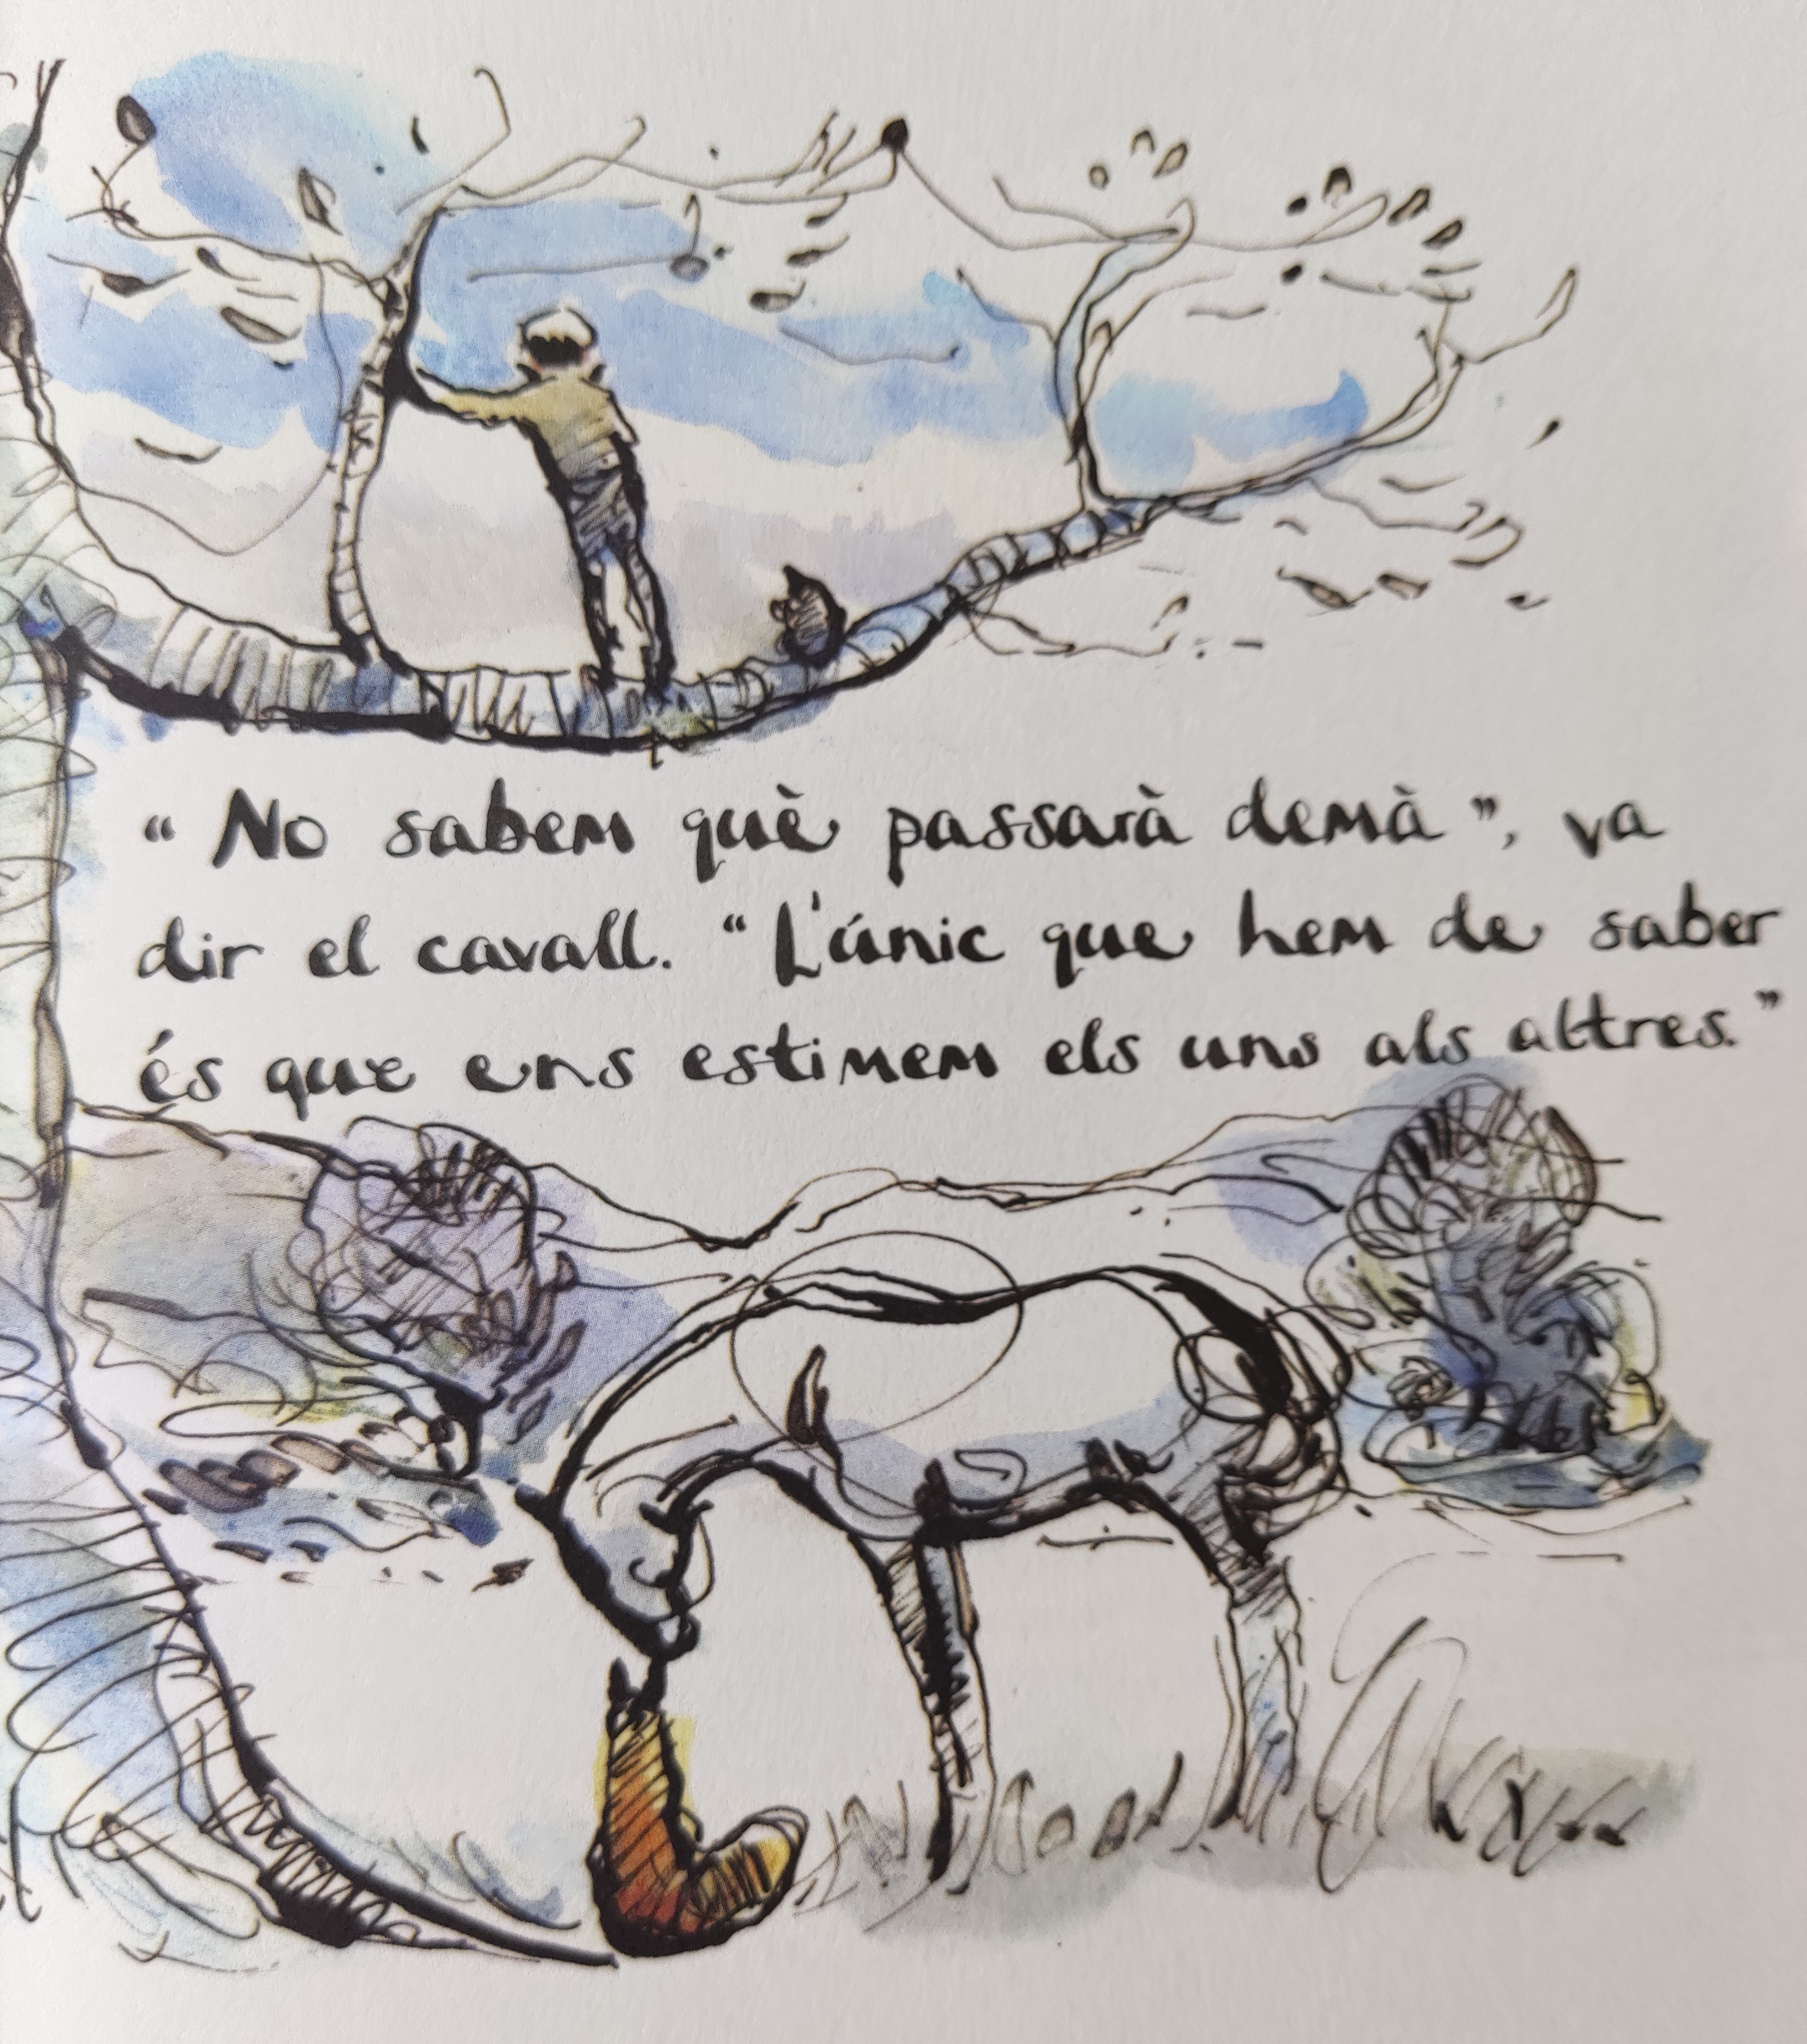 “No sabem què passarà demà”, va
dir el cavall. “L'únic que hem de saber
és que ens estimem els uns als altres.”